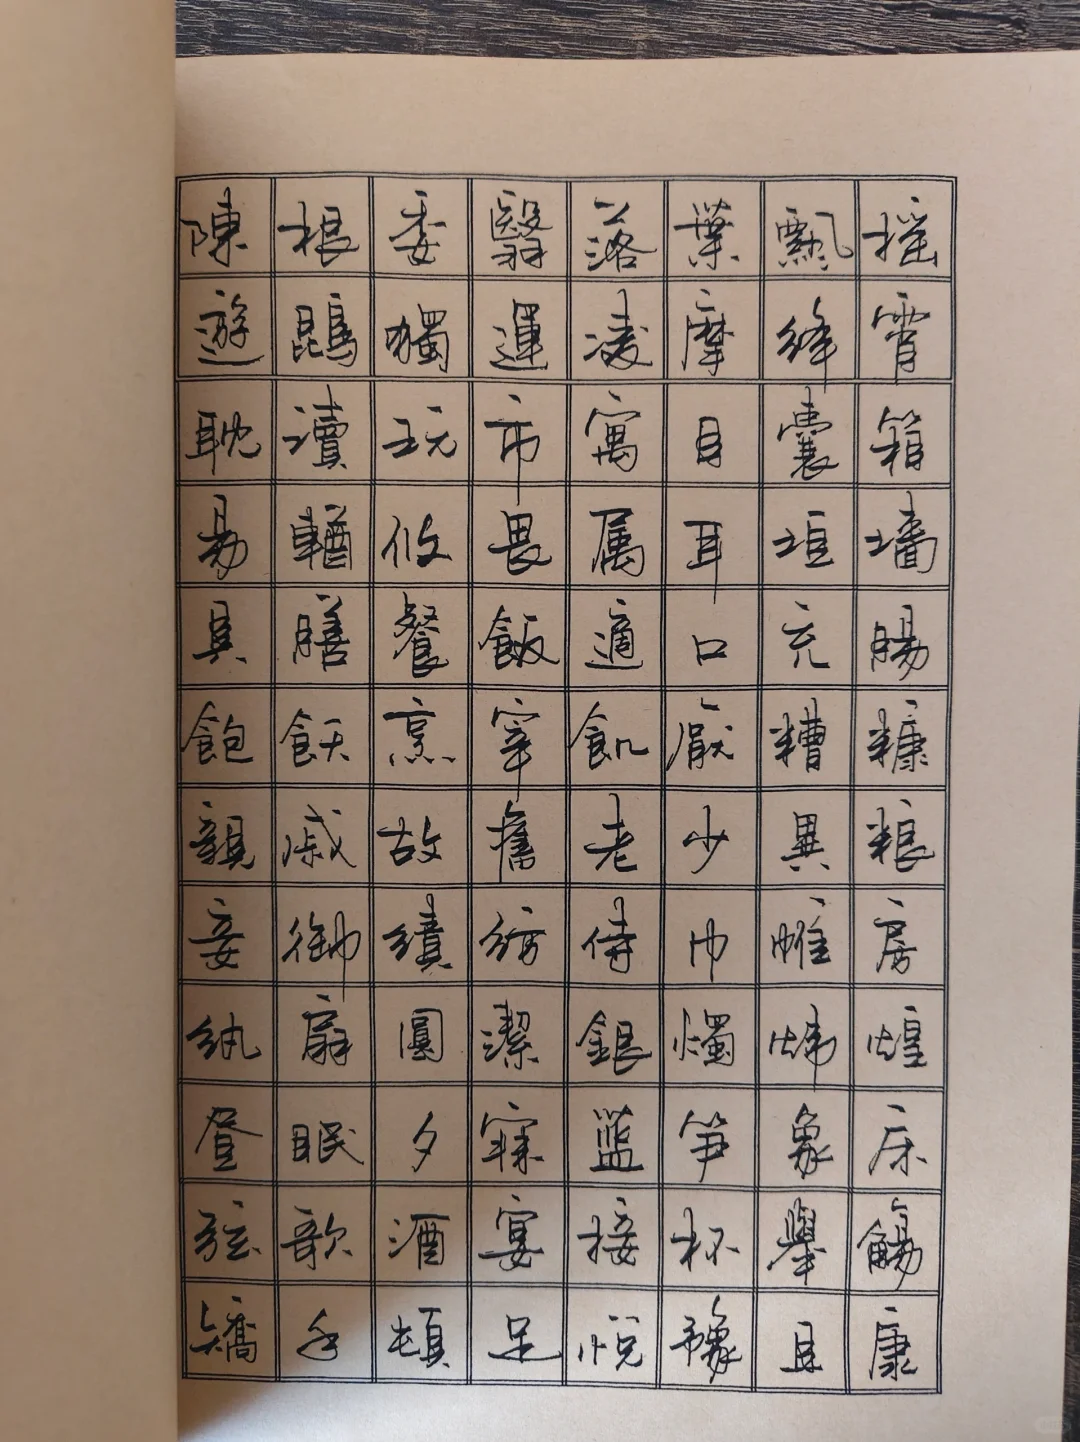 陳根委翳落葉飄摇
遊鵾獨運凌摩絳霄
耽讀玩市寓目囊箱
易輶攸畏属耳垣墻
具膳餐飯適口充腸
飽飫烹宰飢厭糟糠
親戚故舊老少異粮
妾御績紡侍巾帷房
紈扇圓潔銀燭煒煌
晝眠夕寐蓝笋象床
弦歌酒宴接杯舉觴
矯手頓足悦豫且康